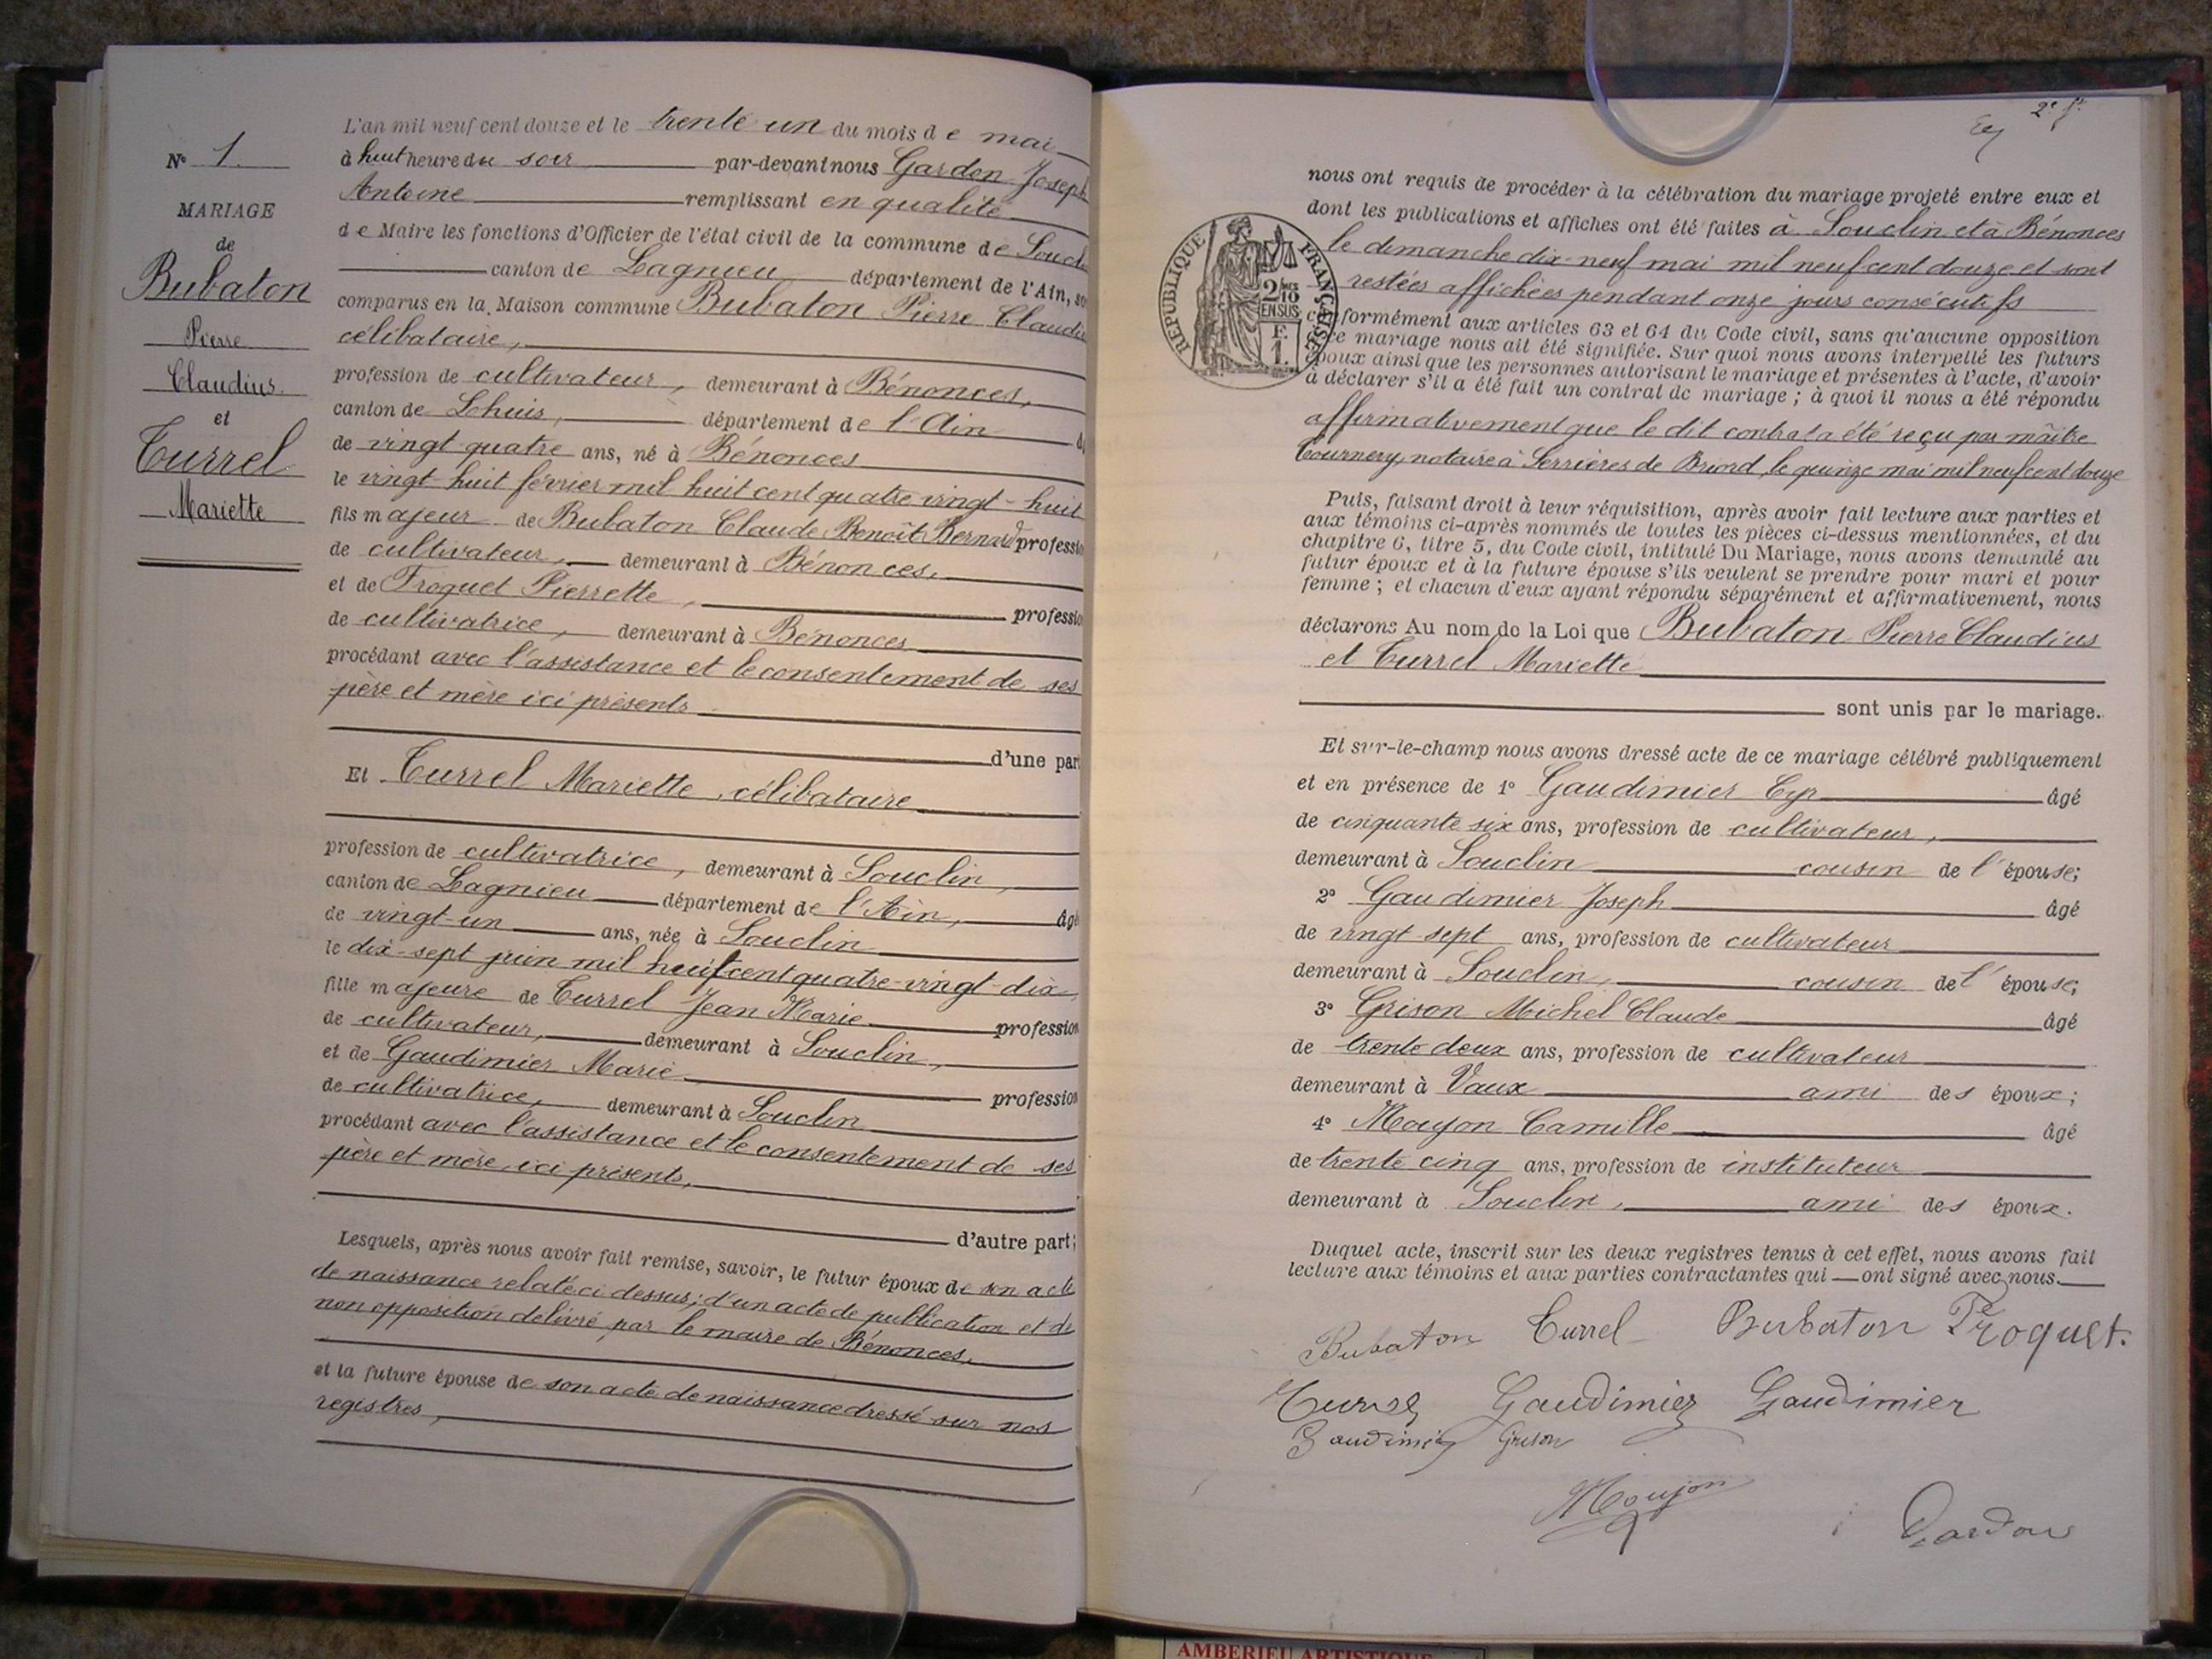 N° 1.
MARIAGE
de
Bubaton
Pierre
Claudius.
et
Turrel
Mariette
L'an mil neuf cent douze et le trente un du mois de mai
à huit heure du soir par-devant nous Gardon Joseph
Antoine remplissant en qualité
de Maire les fonctions d'Officier de l'état civil de la commune de Soucl
canton de Lagnieu département de l'Ain, so
comparus en la Maison commune Bubaton Pierre Claudiu
célibataire,
profession de cultivateur, demeurant à Bénonces,
canton de Lhuis, département de l'Ain
de vingt quatre ans, né à Bénonces
le vingt-huit février mil huit cent quatre-vingt-huit
fils majeur de Bubaton Claude Benoît Bernard professi
de cultivateur, demeurant à Bénonces,
et de Froquet Pierrette, professi
de cultivatrice, demeurant à Bénonces
procédant avec l'assistance et le consentement de ses
père et mère ici présents
d'une par
Et Turrel Mariette, célibataire
profession de cultivatrice, demeurant à Souclin,
canton de Lagnieu département de l'Ain, âgé
de vingt-un ans, née à Souclin
le dix-sept juin mil huit cent quatre-vingt-dix,
fille majeure de Turrel Jean Marie profession
de cultivateur, demeurant à Souclin,
et de Gaudimier Marie profession
de cultivatrice, demeurant à Souclin
procédant avec l'assistance et le consentement de ses
père et mère, ici présents,
d'autre part;
Lesquels, après nous avoir fait remise, savoir, le futur époux de son acte
de naissance relaté ci dessus; d'un acte de publication et de
non opposition délivré par le maire de Bénonces,
et la future épouse de son acte de naissance dressé sur nos
registres,
2e ft
nous ont requis de procéder à la célébration du mariage projeté entre eux et
dont les publications et affiches ont été faites à Souclin et à Bénonces
le dimanche dix-neuf mai mil neuf cent douze et sont
restées affichées pendant onze jours consécutifs
REPUBLIQUE FRANÇAISE
2/10
EN SUS
F.
1.
formément aux articles 63 et 64 du Code civil, sans qu'aucune opposition
ce mariage nous ait été signifiée. Sur quoi nous avons interpellé les futurs
époux ainsi que les personnes autorisant le mariage et présentes à l'acte, d'avoir
à déclarer s'il a été fait un contrat de mariage; à quoi il nous a été répondu
affirmativement que le dit contrat a été reçu par maître
Tournery, notaire à Serrières de Briord, le quinze mai mil neuf cent douze
Puis, faisant droit à leur réquisition, après avoir fait lecture aux parties et
aux témoins ci-après nommés de toutes les pièces ci-dessus mentionnées, et du
chapitre 6, titre 5, du Code civil, intitulé Du Mariage, nous avons demandé au
futur époux et à la future épouse s'ils veulent se prendre pour mari et pour
femme; et chacun d'eux ayant répondu séparément et affirmativement, nous
déclarons Au nom de la Loi que Bubaton Pierre Claudius
et Turrel Mariette
sont unis par le mariage.
Et sur-le-champ nous avons dressé acte de ce mariage célébré publiquement
et en présence de 1° Gaudimier Cyr âgé
de cinquante six ans, profession de cultivateur,
demeurant à Souclin cousin de l'épouse;
2° Gaudimier Joseph âgé
de vingt sept ans, profession de cultivateur
demeurant à Souclin, cousin de l'épouse;
3° Grison Michel Claude âgé
de trente deux ans, profession de cultivateur
demeurant à Vaux ami des époux;
4° Moujon Camille âgé
de trente cinq ans, profession de instituteur
demeurant à Souclin, ami des époux.
Duquel acte, inscrit sur les deux registres tenus à cet effet, nous avons fait
lecture aux témoins et aux parties contractantes qui ont signé avec nous.
Bubaton Turrel Bubaton Froquet.
Turrel Gaudimier Gaudimier
Gaudimier Grison
Moujon Gardon
AMBERIEU ARTISTIQUE